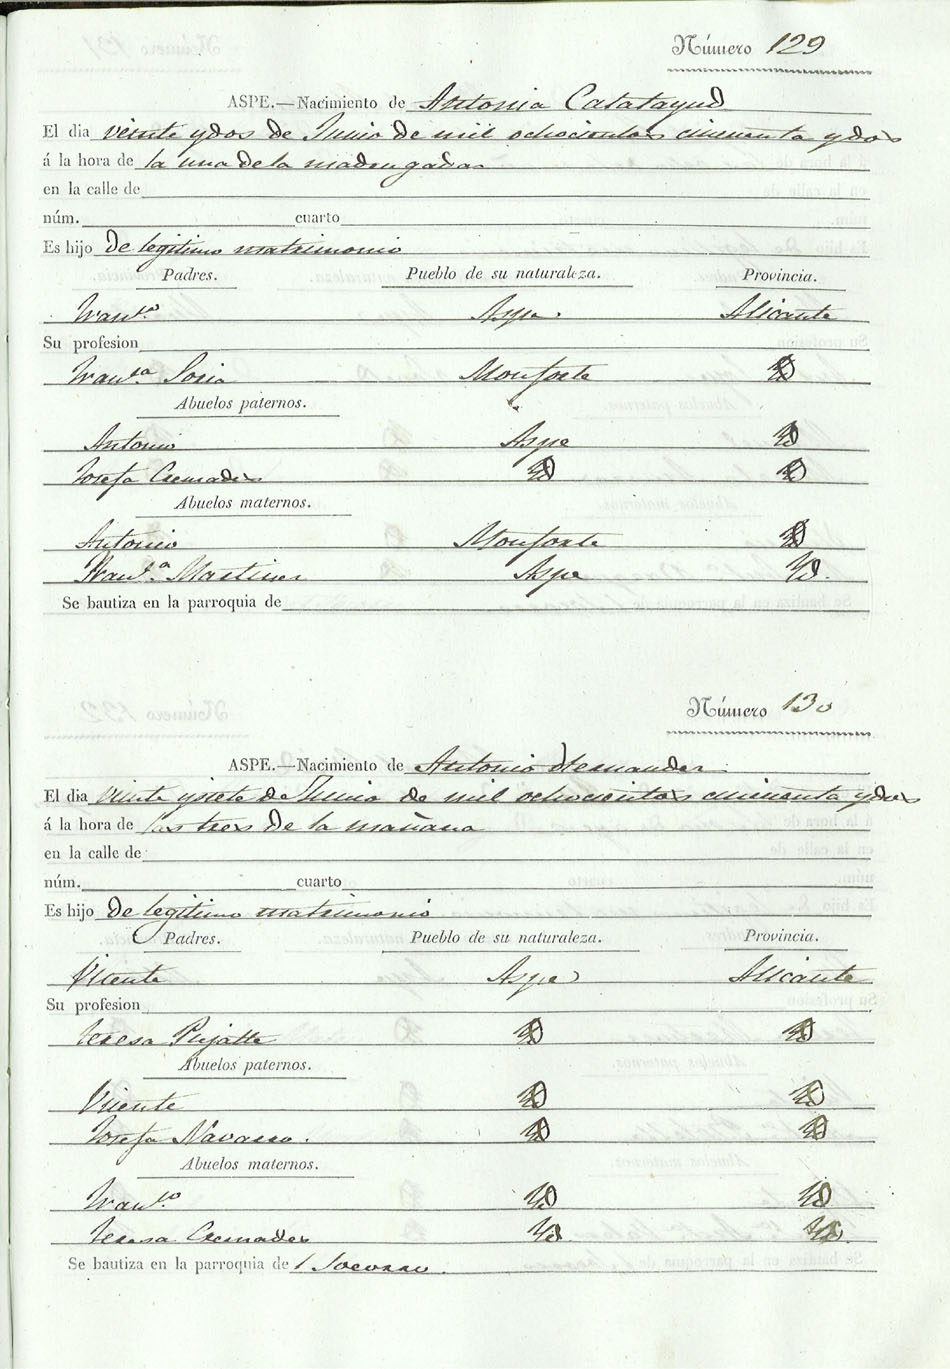 Número 129
ASPE.—Nacimiento de Antonia Calatayud
El dia veinte y dos de Junio de mil ochocientos cincuenta y dos
á la hora de la una de la madrugada
en la calle de
núm. cuarto
Es hijo de legitimo matrimonio
Padres. Pueblo de su naturaleza. Provincia.
Fran.co Aspe. Alicante
Su profesion
Fran.ca Soria Monforte Yd
Abuelos paternos.
Antonio Aspe Yd
Josefa Cremades Yd Yd
Abuelos maternos.
Antonio Monforte Yd
Fran.ca Martinez Aspe Yd.
Se bautiza en la parroquia de
Número 130
ASPE.—Nacimiento de Antonio Hernandez
El dia veinte y siete de Junio de mil ochocientos cincuenta y dos
á la hora de las tres de la mañana
en la calle de
núm. cuarto
Es hijo de legitimo matrimonio
Padres. Pueblo de su naturaleza. Provincia.
Vicente Aspe Alicante
Su profesion
Teresa Pujalte Yd Yd
Abuelos paternos.
Vicente Yd Yd
Josefa Navarro. Yd Yd
Abuelos maternos.
Fran.co Yd Yd
Teresa Cremades Yd Yd.
Se bautiza en la parroquia de Socorro.